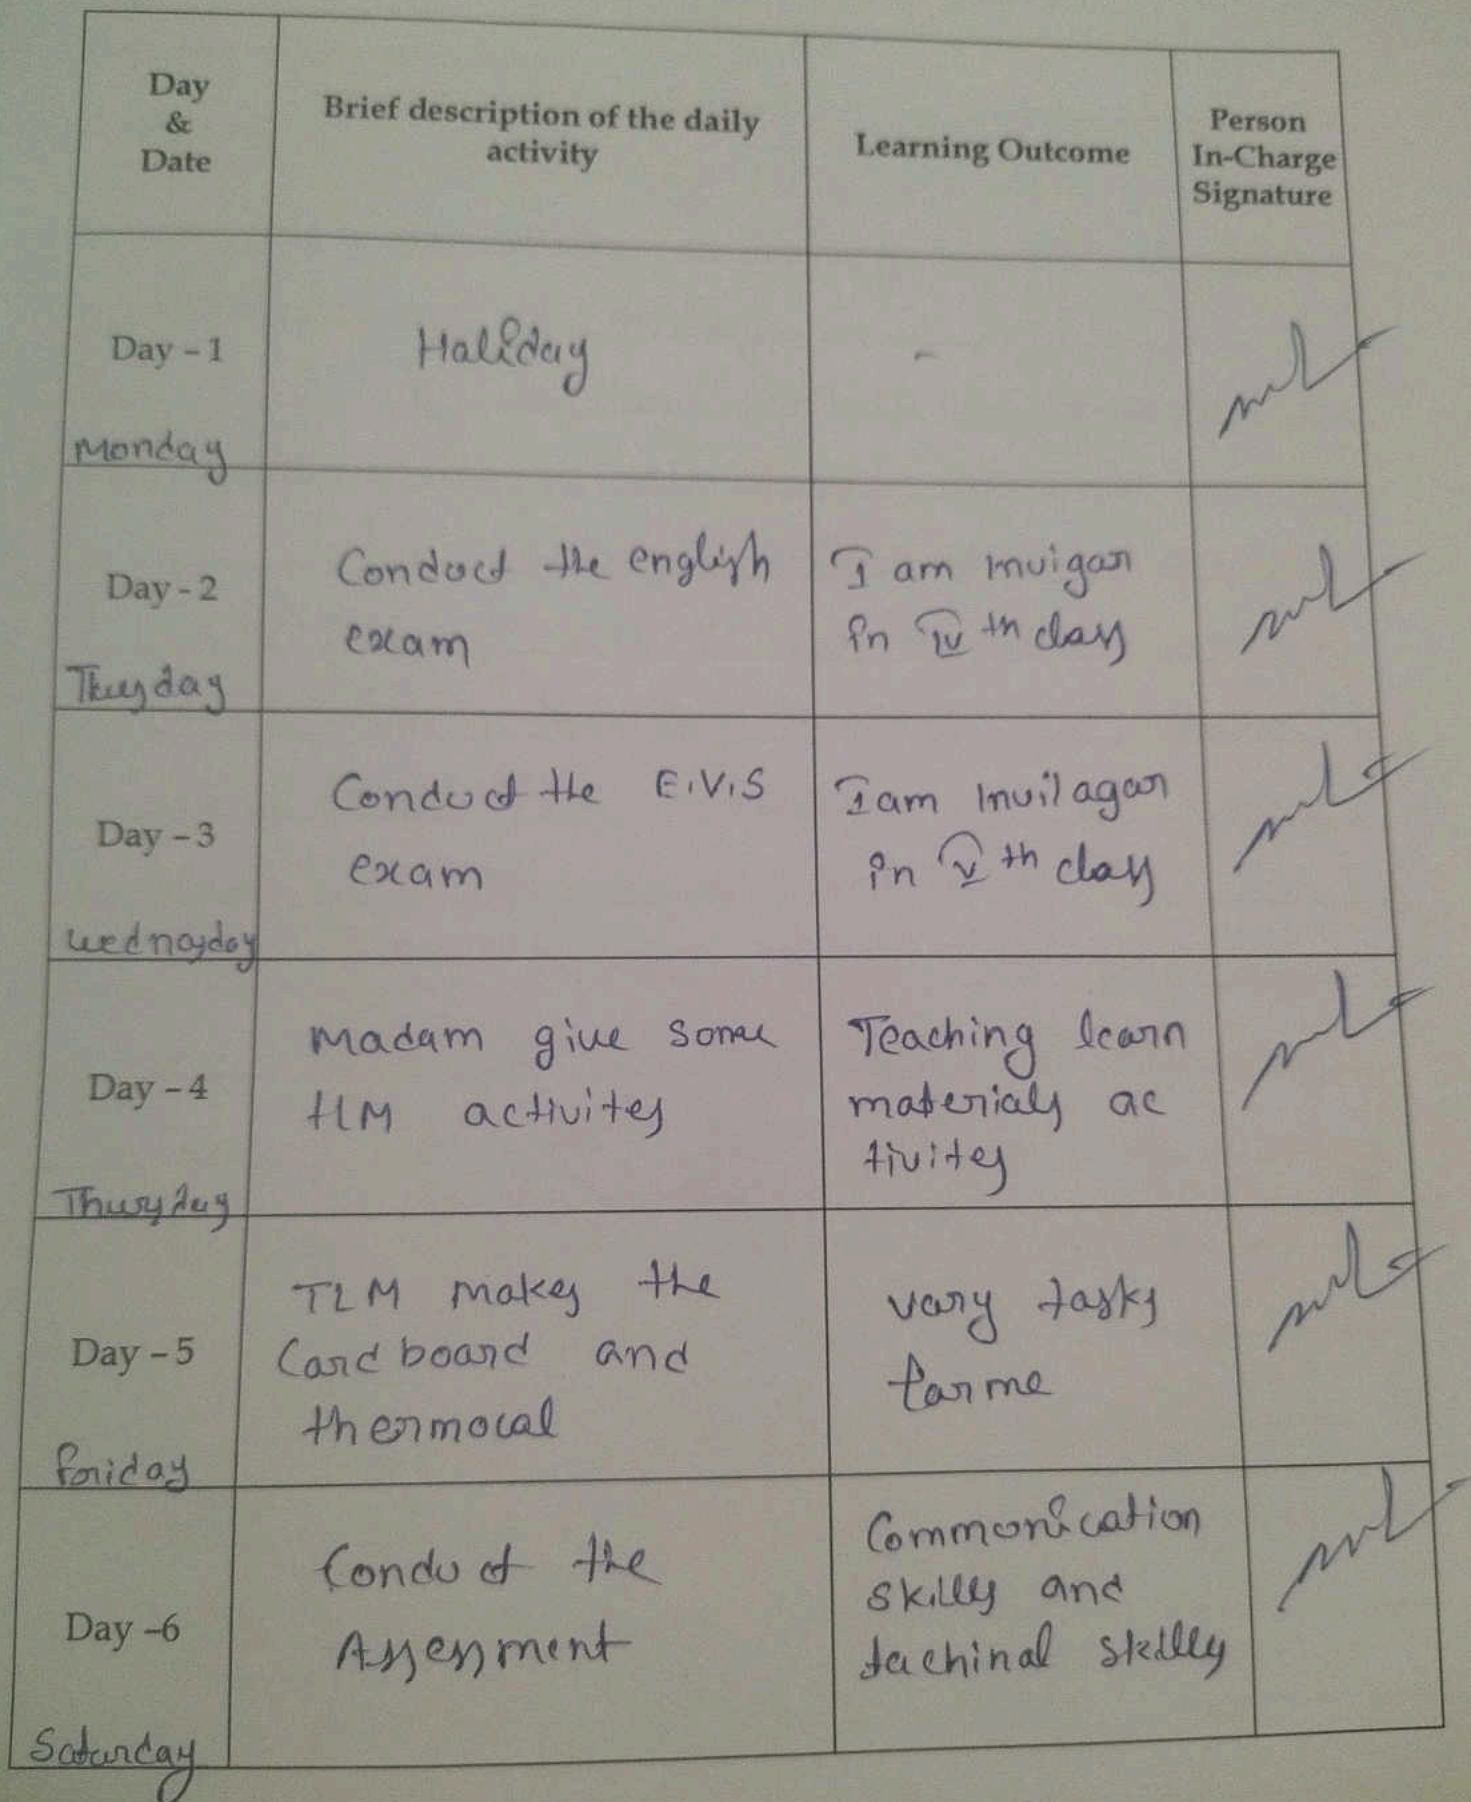 Day
&
Date
Brief description of the daily
activity
Learning Outcome
Person
In-Charge
Signature
Day - 1
Monday
Haliday
-
Day - 2
Thusday
Conduct the english
exam
I am Invigar
in IV th class
Day - 3
Wednasday
Conduct the E.V.S
exam
I am Invilagar
in V th class
Day - 4
Thursday
Madam give some
tLM activites
Teaching learn
materials ac
tivites
Day - 5
Friday
TLM makes the
Card board and
thermocal
vary tasks
farme
Day -6
Saturday
Conduct the
Assessment
Communication
skills and
tachinal skills